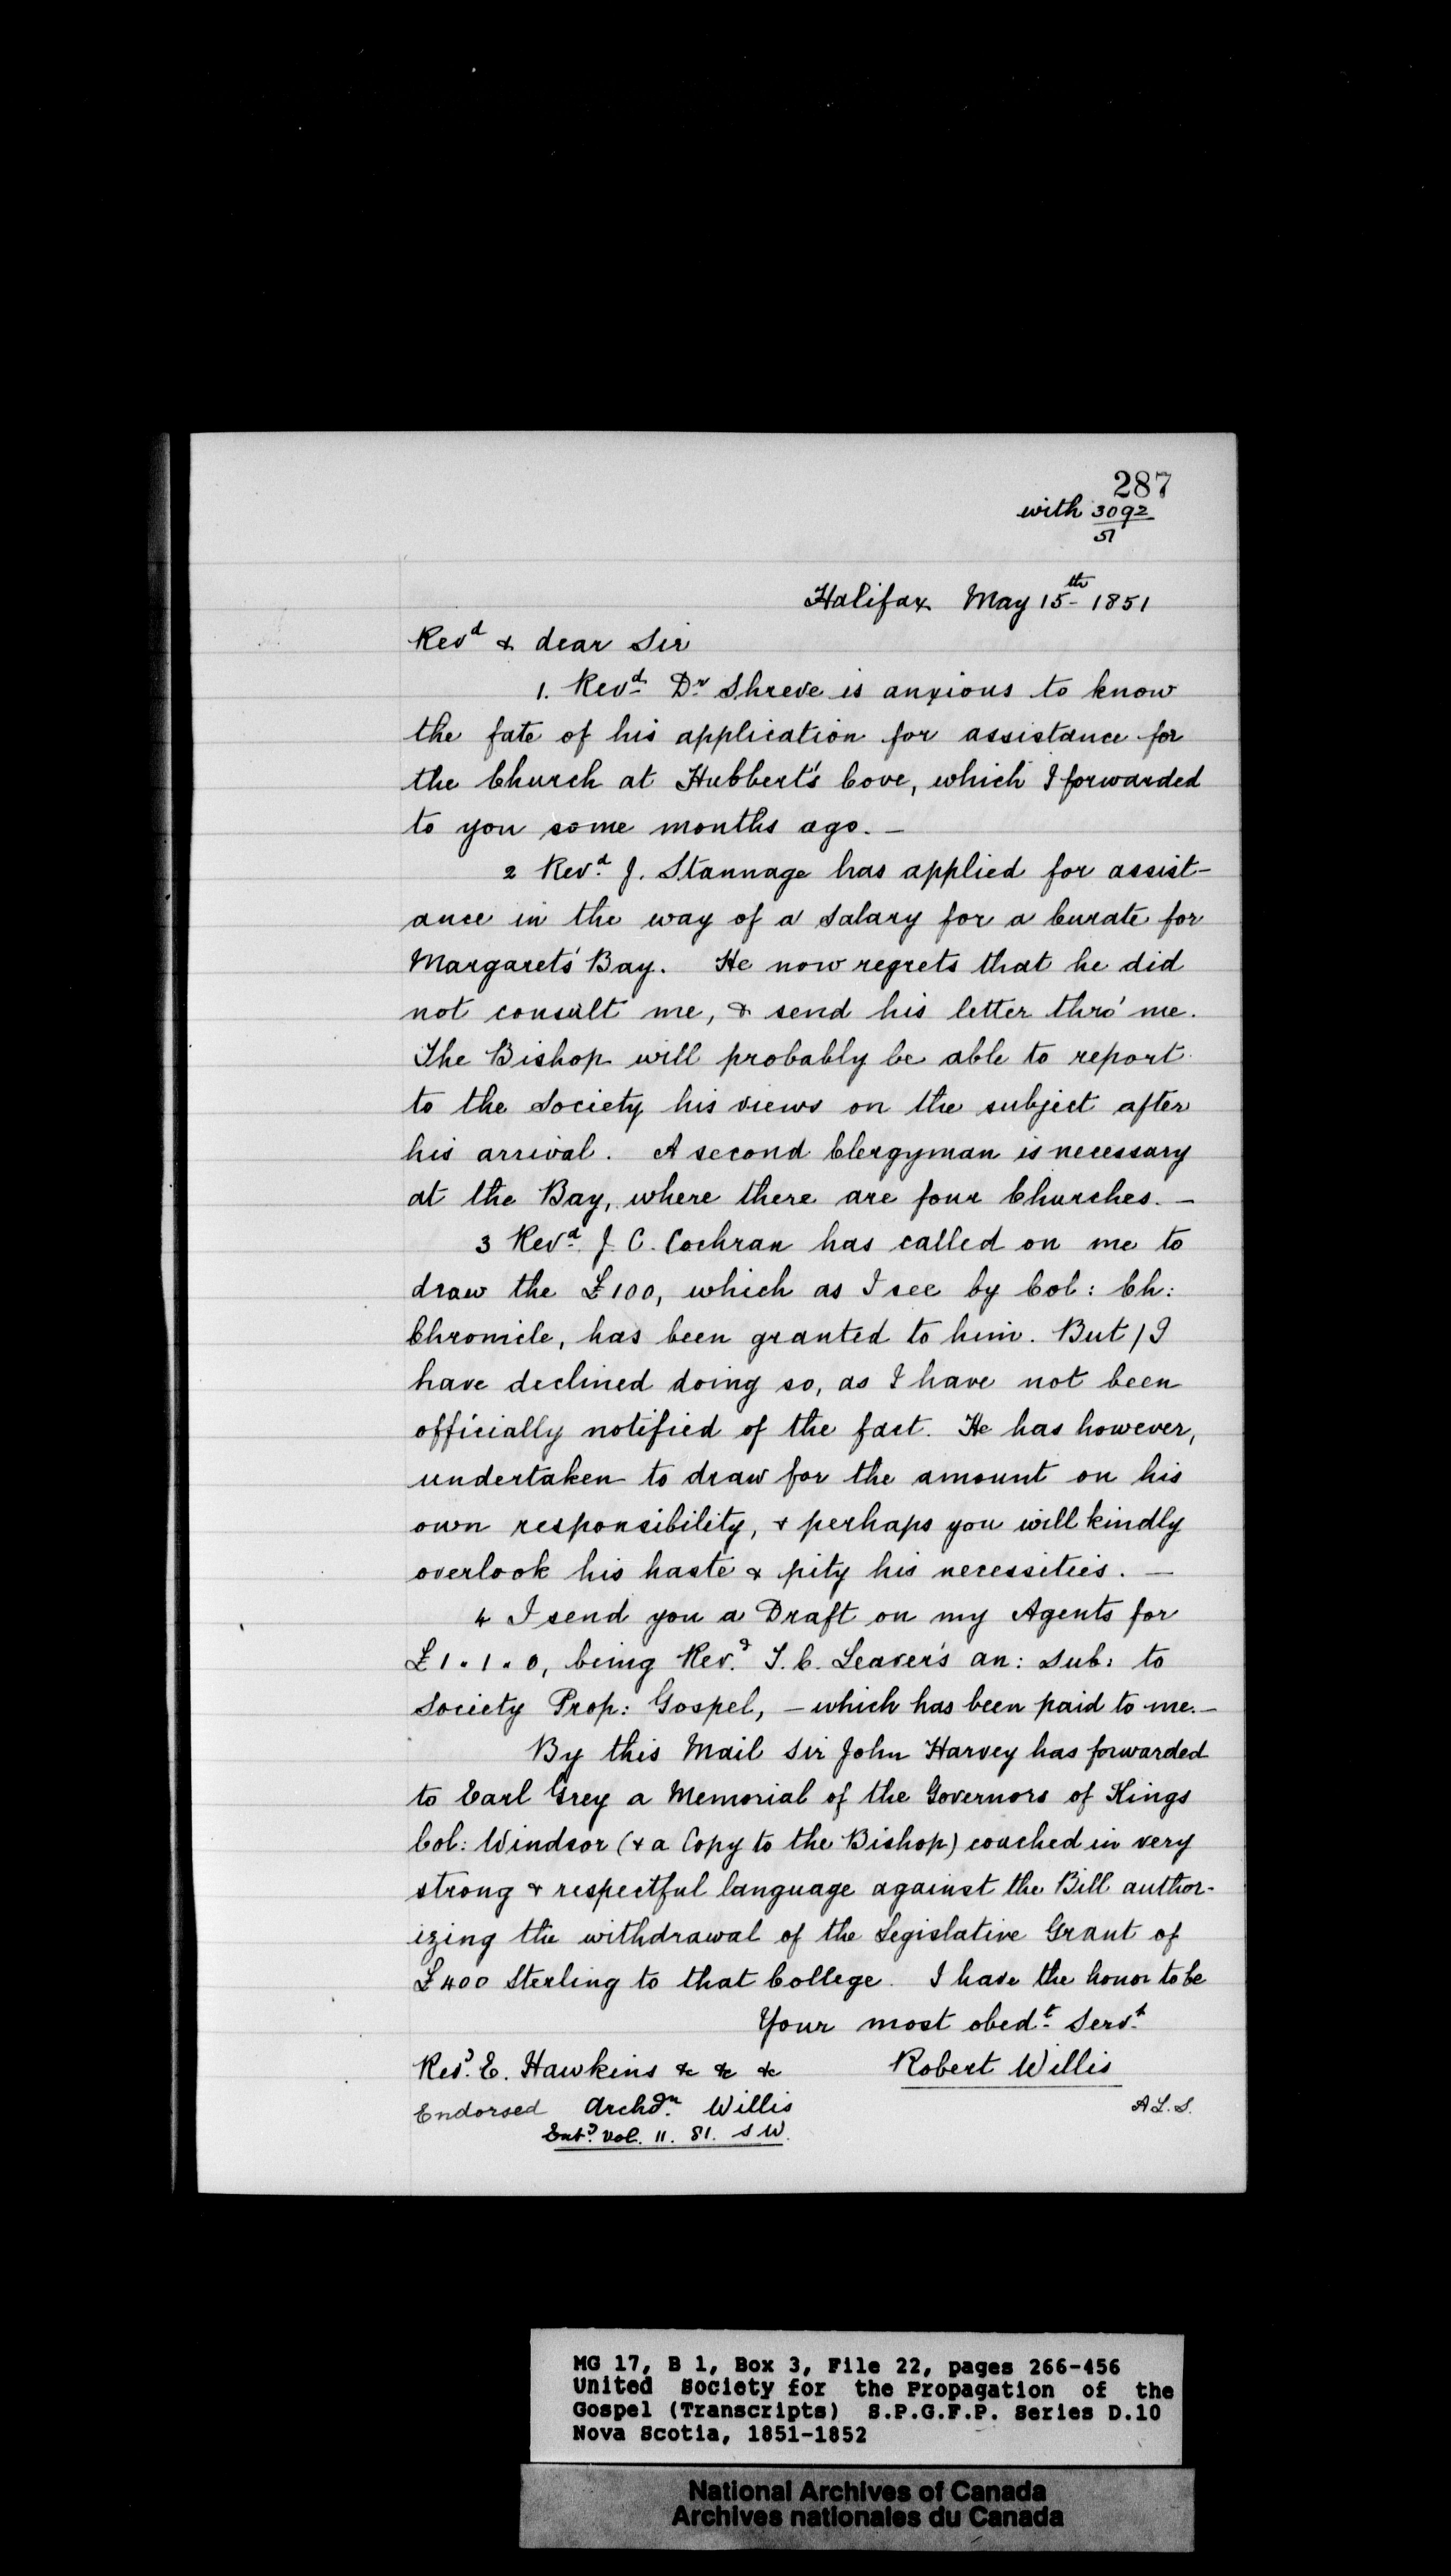 287
with 3092
51
Halifax May 15th 1851
Revd & dear Sir
1. Revd Dr Shreve is anxious to know
the fate of his application for assistance for
the Church at Hubbert's Cove, which I forwarded
to you some months ago. —
2 Revd J. Stannage has applied for assist-
ance in the way of a Salary for a Curate for
Margaret's Bay. He now regrets that he did
not consult me, & send his letter thro' me.
The Bishop will probably be able to report
to the Society his views on the subject after
his arrival. A second Clergyman is necessary
at the Bay, where there are four Churches. —
3 Revd J. C. Cochran has called on me to
draw the £100, which as I see by Col: Ch:
Chronicle, has been granted to him. But I
have declined doing so, as I have not been
officially notified of the fact. He has however,
undertaken to draw for the amount on his
own responsibility, & perhaps you will kindly
overlook his haste & pity his necessities. —
4 I send you a Draft on my Agents for
£1.1.0, being Revd T. C. Leaver's an: Sub: to
Society Prop: Gospel, — which has been paid to me. —
By this Mail Sir John Harvey has forwarded
to Earl Grey a Memorial of the Governors of Kings
Col: Windsor (& a Copy to the Bishop) couched in very
strong & respectful language against the Bill author-
izing the withdrawal of the Legislative Grant of
£400 Sterling to that College. I have the honor to be
Your most obedt Servt
Revd E. Hawkins &c &c &c Robert Willis
Endorsed Archdn Willis A.L.S.
Entd Vol. 11. 81. S W.
MG 17, B 1, Box 3, File 22, pages 266-456
United Society for the Propagation of the
Gospel (Transcripts) S.P.G.F.P. Series D.10
Nova Scotia, 1851-1852
National Archives of Canada
Archives nationales du Canada